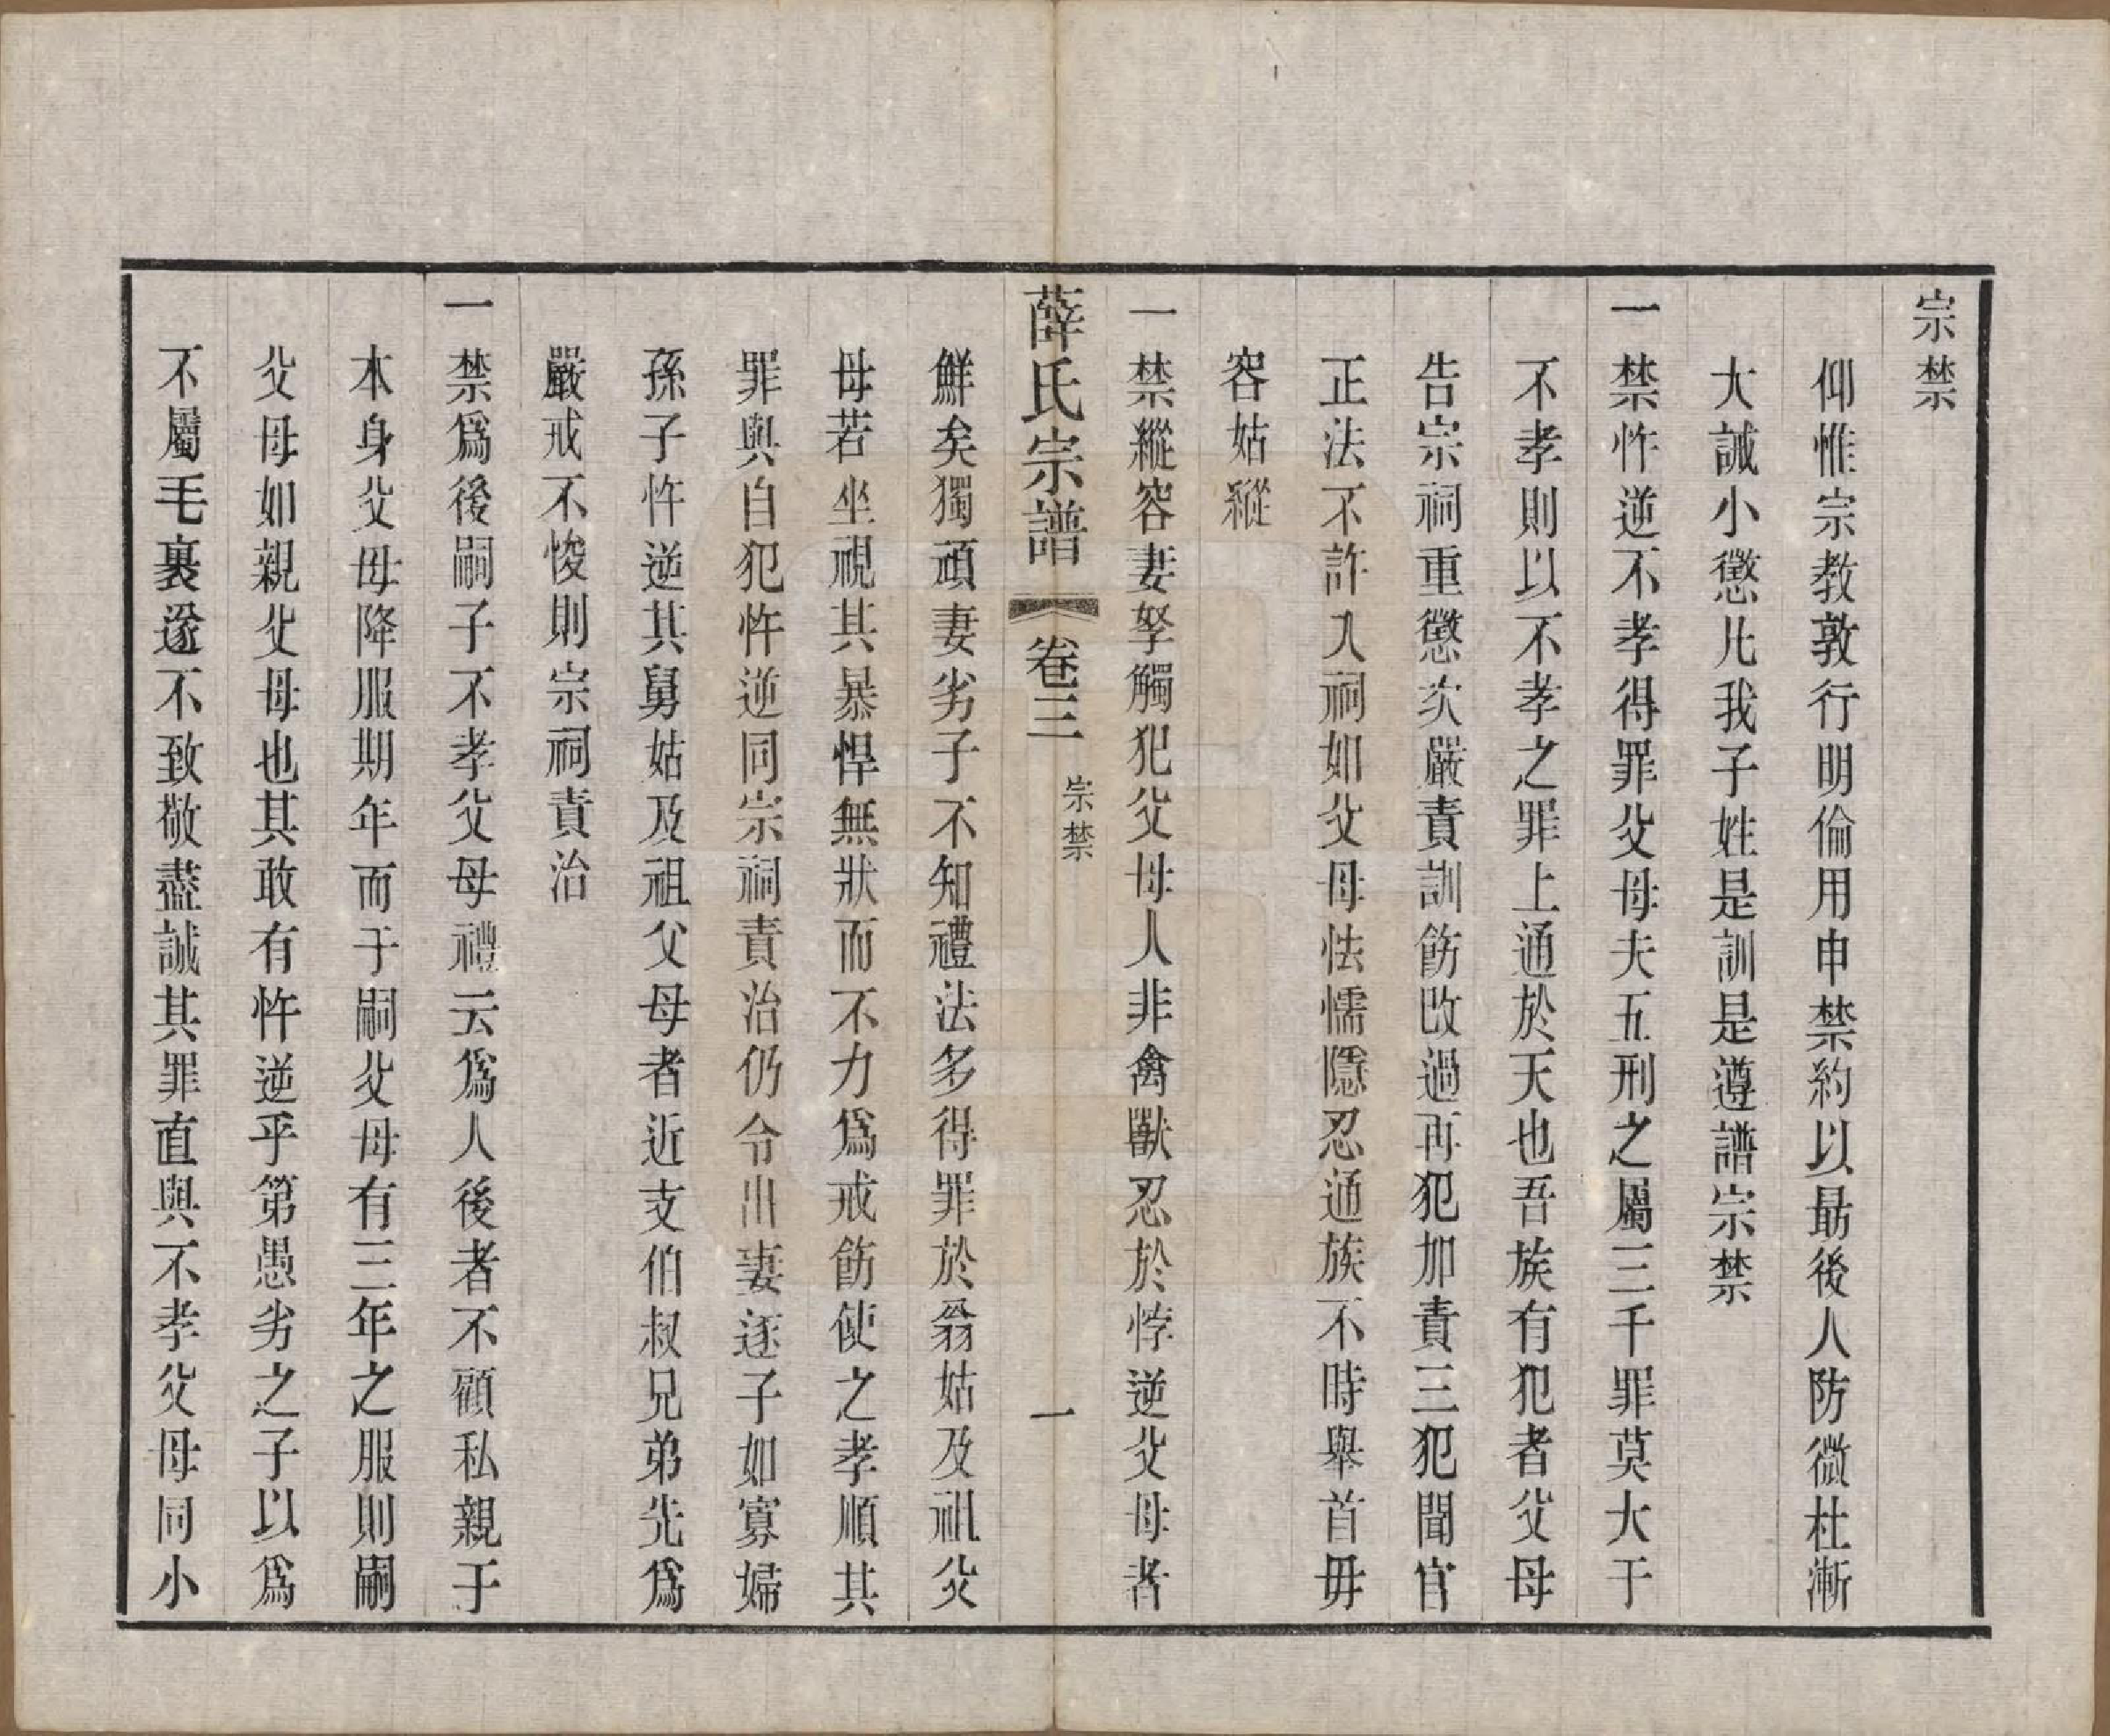 宗禁
仰惟宗教敦行明倫用申禁約以最後人防微杜漸
大誡小懲凡我子姓是訓是遵譜宗禁
一禁忤逆不孝得罪父母夫五刑之屬三千罪莫大于
不孝則以不孝之罪上通於天也吾族有犯者父母
告宗祠重懲次嚴責訓飭改過再犯加責三犯聞官
正法不許入祠如父母怯懦隱忍通族不時舉首毋
容姑縱
一禁縱容妻孥觸犯父母人非禽獸忍於悖逆父母者
薛氏宗譜 卷三 宗禁 一
鮮矣獨頑妻劣子不知禮法多得罪於翁姑及祖父
母若坐視其暴悍無狀而不力爲戒飭使之孝順其
罪與自犯忤逆同宗祠責治仍令出妻逐子如寡婦
孫子忤逆其舅姑及祖父母者近支伯叔兄弟先爲
嚴戒不悛則宗祠責治
一禁爲後嗣子不孝父母禮云爲人後者不顧私親于
本身父母降服期年而于嗣父母有三年之服則嗣
父母如親父母也其敢有忤逆乎第愚劣之子以爲
不屬毛裏遂不致敬盡誠其罪直與不孝父母同小